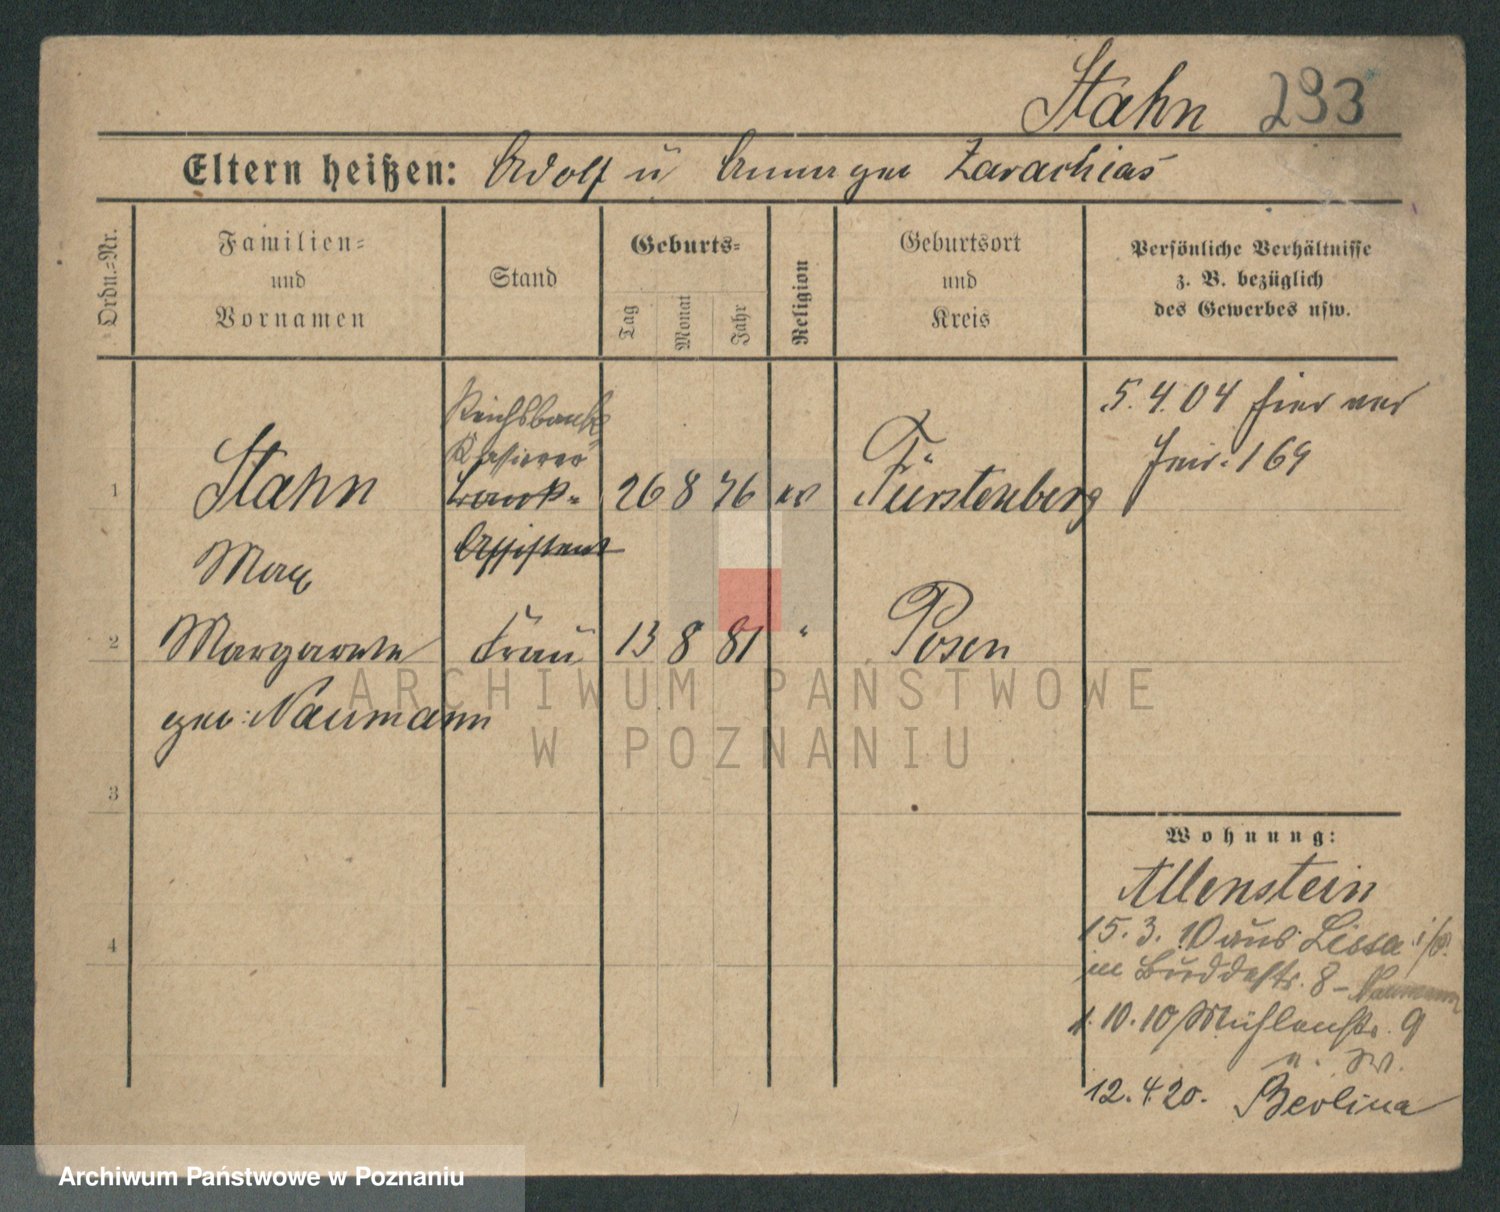 Stahn 293
Eltern heißen: Adolf u Anna geb Zarachias
Ordn.=Nr.
Familien=
und
Vornamen
Stand
Geburts=
Tag
Monat
Jahr
Religion
Geburtsort
und
Kreis
Persönliche Verhältnisse
z. B. bezüglich
des Gewerbes usw.
1
Stahn
Max
Reichsbank
Kassierer
Bank=
Assistent
26 8 76 ev
Fürstenberg
5. 4. 04 hier
169
2
Margarete
geb. Naumann
Frau
13 8 81 "
Posen
3
4
Wohnung:
Allenstein
15. 3. 10 aus Lissa i/P.
in Buddestr. 8 - Naumann
1. 10. 10 Mühlenstr. 9
12. 4. 20. Berlin
ARCHIWUM PAŃSTWOWE
W POZNANIU
Archiwum Państwowe w Poznaniu